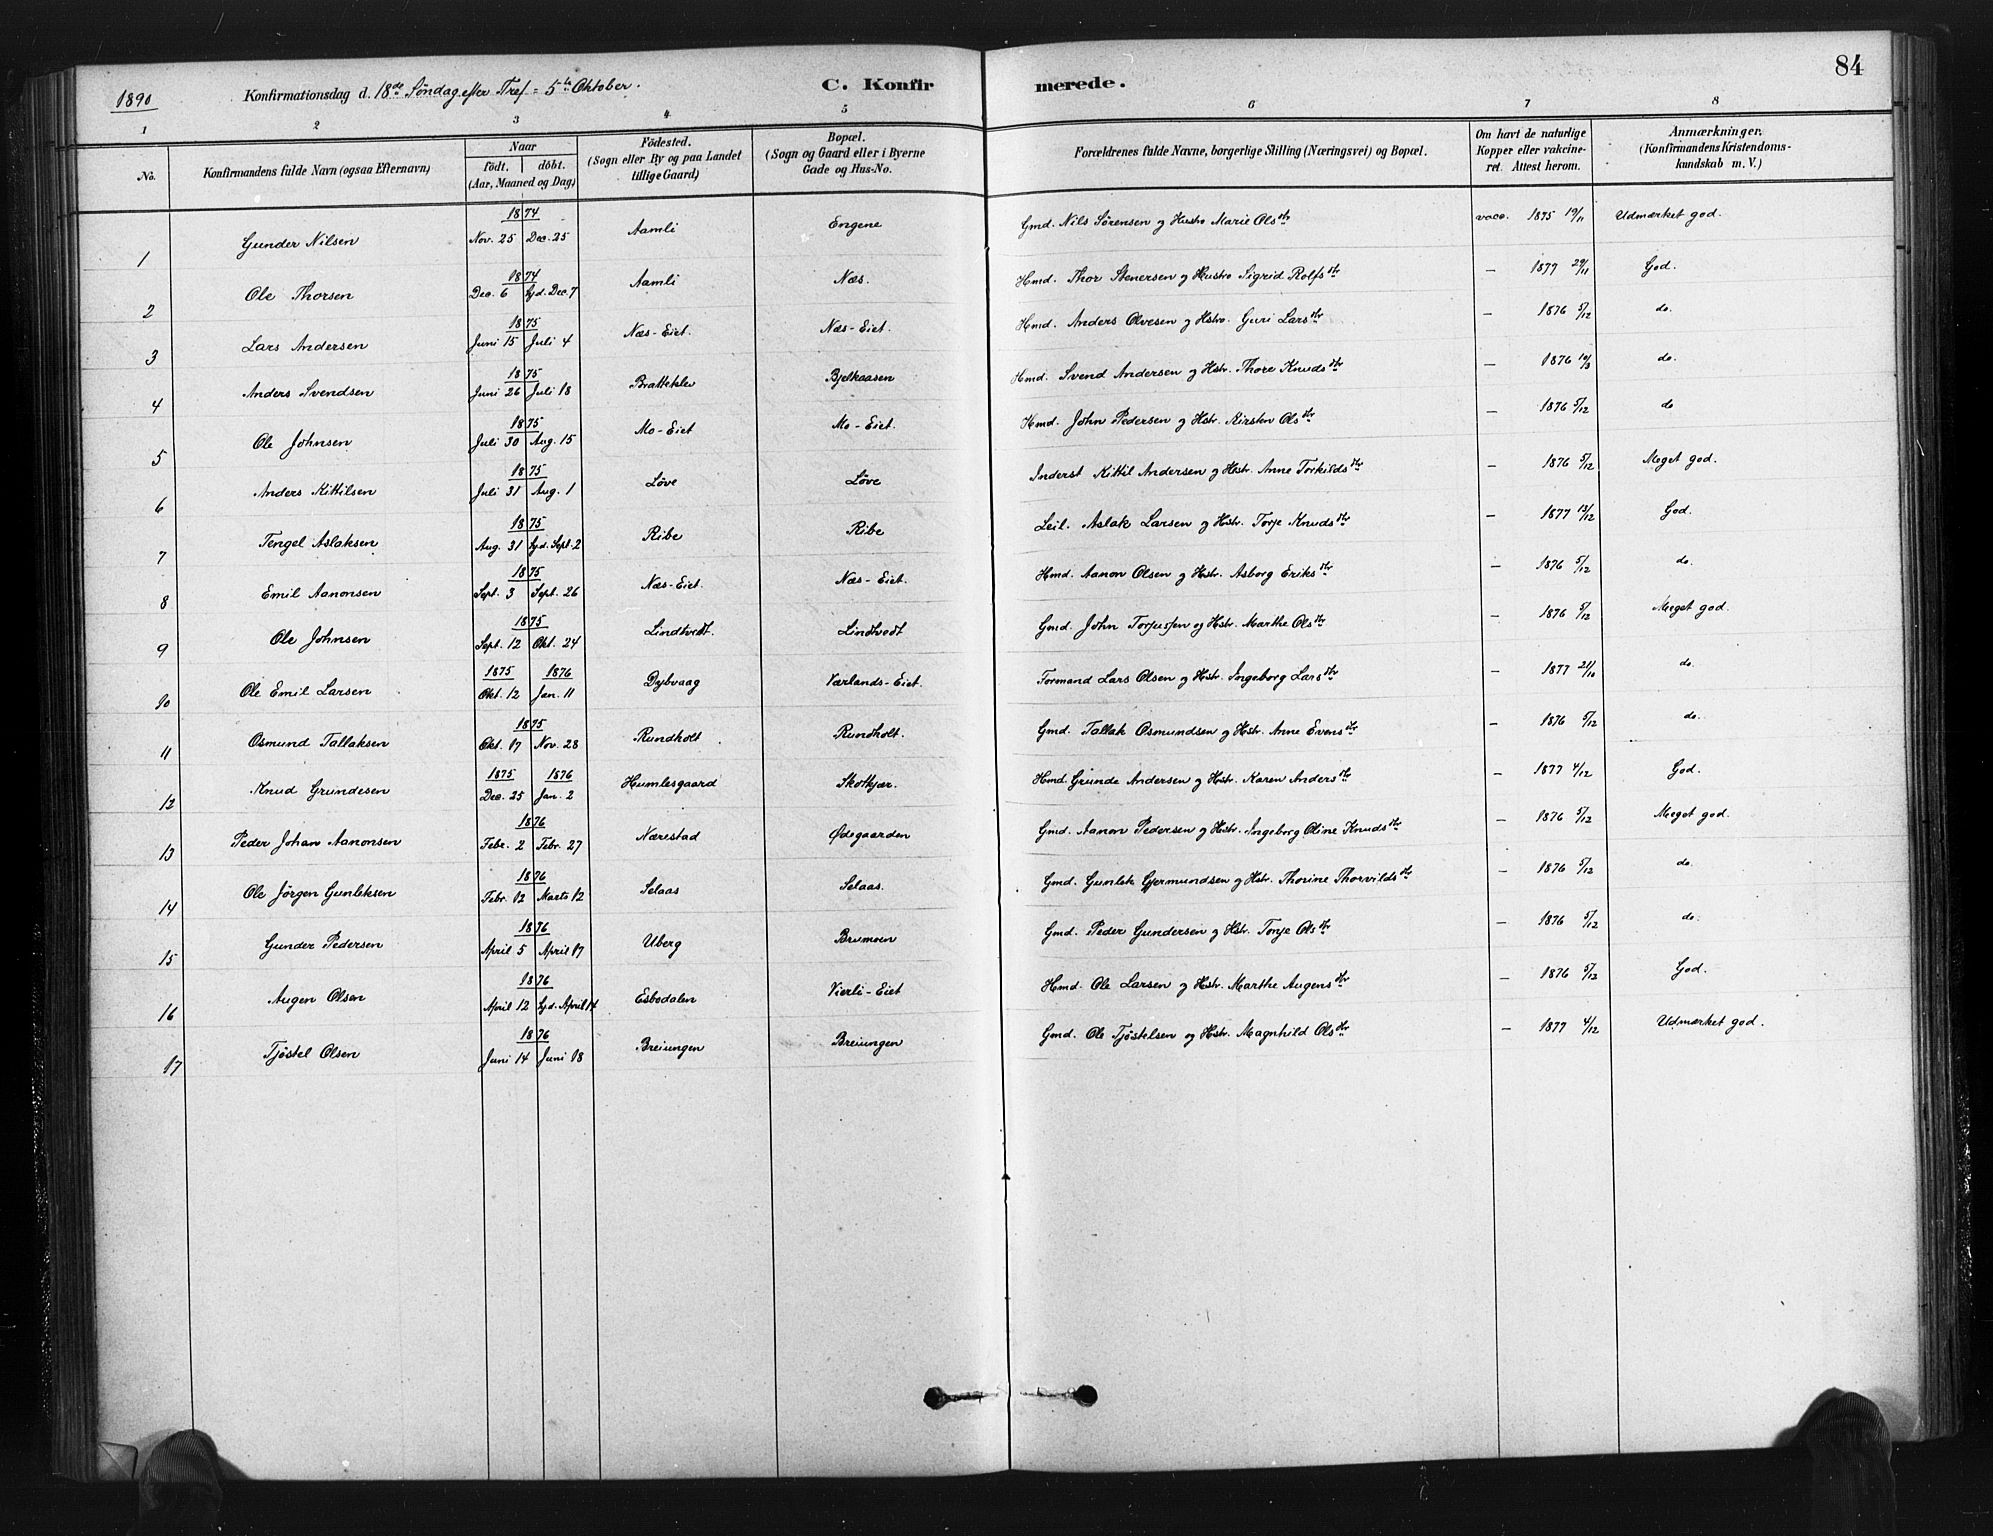 84
1890 Konfirmationsdag d. 18de Söndag efter Tref = 5te Oktober. C. Konfirmerede.
1 2 3 4 5 6 7 8
No. | Konfirmandens fulde Navn (ogsaa Efternavn) | Naar födt. döbt. (Aar, Maaned og Dag) | Födested. (Sogn eller By og paa Landet tillige Gaard) | Bopæl. (Sogn og Gaard eller i Byerne Gade og Hus-No. | Forældrenes fulde Navne, borgerlige Stilling (Næringsvei) og Bopæl. | Om havt de naturlige Kopper eller vakcineret. Attest herom. | Anmærkninger. (Konfirmandens Kristendomskundskab m. V.)
1 Gunder Nilsen | 1874 Nov. 25 Dec. 25 | Aamli | Engene | Gmd. Nils Sörensen og Hustro Marie Olsdtr | vacc. 1875 19/11 | Udmærket god.
2 Ole Thorsen | 1874 Dec. 6 hjd. Dec. 7 | Aamli | Næs. | Hmd. Thor Stenersen og Hustro Sigrid Rolfsdtr | – 1877 29/11 | God.
3 Lars Andersen | 1875 Juni 15 Juli 4 | Næs-Eiet. | Næs-Eiet. | Hmd. Anders Olvesen og Hstro. Guri Larsdtr | – 1876 5/12 | do.
4 Anders Svendsen | 1875 Juni 26 Juli 18 | Bratteklev | Bjelkaasen | Hmd. Svend Andersen og Hstr. Thore Knudsdtr | – 1876 | do.
5 Ole Johnsen | 1875 Juli 30 Aug. 15 | Mo-Eiet | Mo-Eiet. | Hmd. John Pedersen og Hstr. Kirsten Olsdtr | – 1876 5/12 | do
6 Anders Kittilsen | 1875 Juli 31 Aug. 1 | Löve | Löve | Inderst Kittil Andersen og Hstr. Anne Torkildsdtr | – 1876 5/12 | Meget god.
7 Tengel Aslaksen | 1875 Aug. 31 hjd. Sept. 2 | Ribe | Ribe | Leil. Aslak Larsen og Hstr. Torje Knudsdtr | – 1877 13/12 | God.
8 Emil Aanonsen | 1875 Sept. 3 Sept. 26 | Næs-Eiet. | Næs-Eiet. | Hmd. Aanon Olsen og Hstr. Asborg Eriksdtr | – 1876 5/12 | do.
9 Ole Johnsen | 1875 Sept. 12 Okt. 24 | Lindtvedt. | Lindtvedt | Gmd. John Torjussen og Hstr. Marthe Olsdtr | – 1876 5/12 | Meget god.
10 Ole Emil Larsen | 1875 Okt. 12 1876 Jan. 11 | Dybvaag | Værlands-Eiet. | Formand Lars Olsen og Hstr. Ingeborg Larsdtr | – 1877 21/10 | do.
11 Osmund Tallaksen | 1875 Okt. 17 Nov. 28 | Rundholt | Rundholt. | Gmd. Tallak Osmundsen og Hstr. Anne Evensdtr | – 1876 5/12 | do.
12 Knud Grundesen | 1875 Dec. 25 1876 Jan. 2 | Humlesgaard | Skotkjær. | Hmd. Grunde Andersen og Hstr. Karen Andersdtr | – 1877 4/12 | God.
13 Peder Johan Aanonsen | 1876 Febr. 2 Febr. 27 | Nærestad | Ødegaarden | Gmd. Aanon Pedersen og Hstr. Ingeborg Oline Knudsdtr | – 1876 5/12 | Meget god.
14 Ole Jörgen Gunleksen | 1876 Febr. 12 Marts 12 | Selaas | Selaas. | Gmd. Gunlek Gjermundsen og Hstr. Thorine Thorvildsdtr | – 1876 5/12 | do.
15 Gunder Pedersen | 1876 April 5 April 17 | Uberg | Brumoen | Gmd. Peder Gundersen og Hstr. Torje Olsdtr | – 1876 5/12 | do.
16 Augen Olsen | 1876 April 12 hjd. April 14 | Esbodalen | Vierli-Eiet | Hmd. Ole Larsen og Hstr. Marthe Augensdtr | – 1876 5/12 | God.
17 Tjöstel Olsen | 1876 Juni 14 Juni 18 | Breiungen | Breiungen | Gmd. Ole Tjöstelsen og Hstr. Magnhild Olsdtr | – 1877 4/12 | Udmærket god.